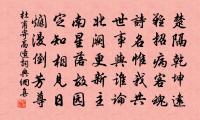 楚隔乾坤遠
難招病客魂
詩名惟我共
世事與誰論
北闕更新主
南星落故園
定知相見日
爛漫倒芳尊
杜甫寄高適詞典網